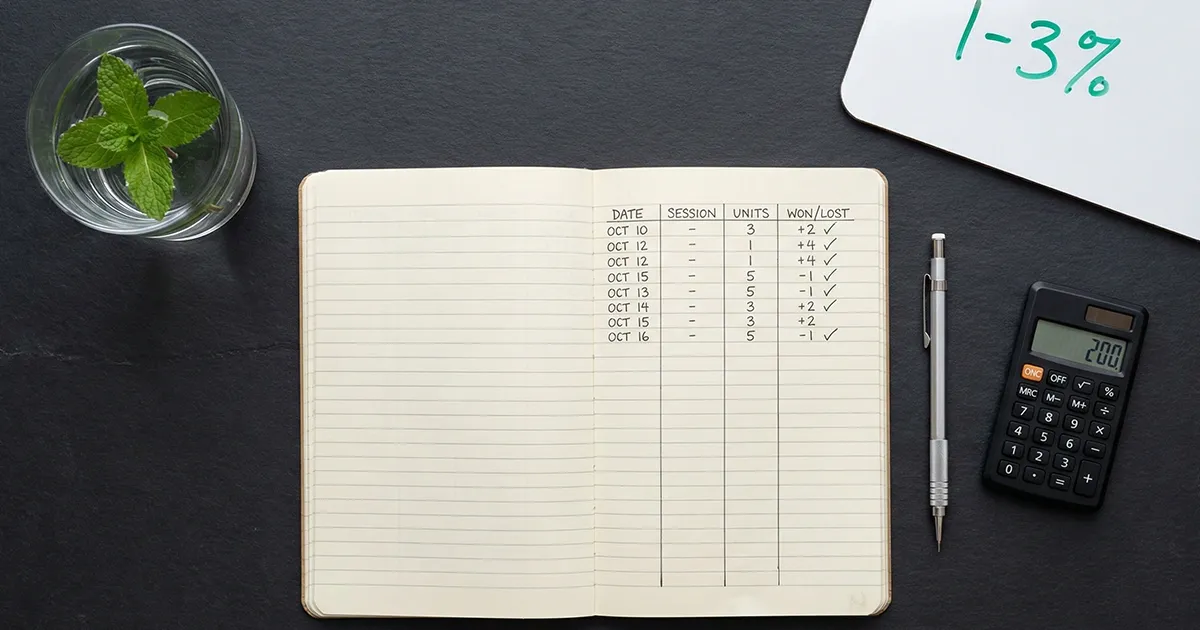 1-3%
DATE SESSION UNITS WON/LOST
OCT 10 - 3 +2 ✓
OCT 12 - 1 +4 ✓
OCT 12 - 1 +4 ✓
OCT 15 - 5 -1 ✓
OCT 13 - 5 -1 ✓
OCT 14 - 3 +2 ✓
OCT 15 - 3 +2
OCT 16 - 5 -1 ✓
200
ON/C OFF √ %
MRC M- M+ ÷
7 8 9 ×
4 5 6 −
1 2 3 +
0 · =